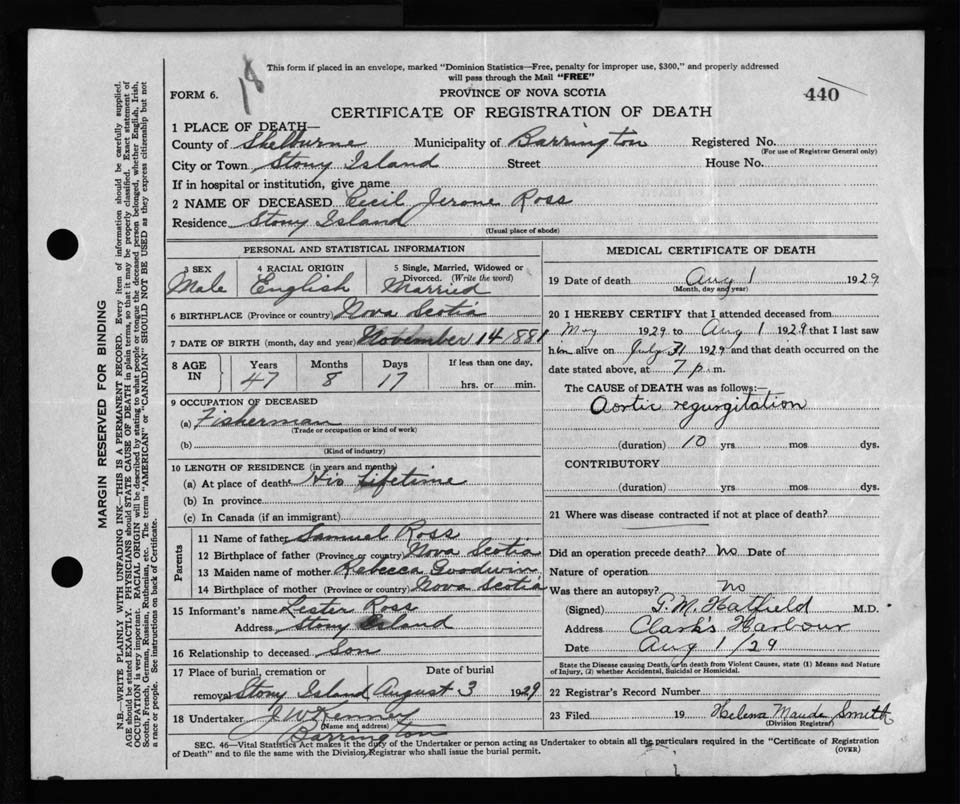 18
This form if placed in an envelope, marked "Dominion Statistics—Free, penalty for improper use, $300," and properly addressed
will pass through the Mail "FREE"
FORM 6.
PROVINCE OF NOVA SCOTIA
440
CERTIFICATE OF REGISTRATION OF DEATH
1 PLACE OF DEATH—
County of Shelburne Municipality of Barrington Registered No.
(For use of Registrar General only)
City or Town Stony Island Street House No.
If in hospital or institution, give name
2 NAME OF DECEASED Cecil Jerome Ross
Residence Stony Island
(Usual place of abode)
PERSONAL AND STATISTICAL INFORMATION
3 SEX 4 RACIAL ORIGIN 5 Single, Married, Widowed or
Divorced. (Write the word)
Male English Married
6 BIRTHPLACE (Province or country) Nova Scotia
7 DATE OF BIRTH (month, day and year) November 14 1881
8 AGE IN Years Months Days If less than one day,
47 8 17 hrs. or min.
9 OCCUPATION OF DECEASED
(a) Fisherman
(Trade or occupation or kind of work)
(b)
(Kind of industry)
10 LENGTH OF RESIDENCE (in years and months)
(a) At place of death His Lifetime
(b) In province
(c) In Canada (if an immigrant)
Parents
11 Name of father Samuel Ross
12 Birthplace of father (Province or country) Nova Scotia
13 Maiden name of mother Rebecca Goodwin
14 Birthplace of mother (Province or country) Nova Scotia
15 Informant's name Lester Ross
Address Stony Island
16 Relationship to deceased Son
17 Place of burial, cremation or Date of burial
removal Stony Island August 3 1929
18 Undertaker J W Kenney
(Name and address)
Barrington
MEDICAL CERTIFICATE OF DEATH
19 Date of death Aug 1 1929
(Month, day and year)
20 I HEREBY CERTIFY that I attended deceased from
May 1929 to Aug 1 1929 that I last saw
him alive on July 31 1929 and that death occurred on the
date stated above, at 7 p.m.
The CAUSE of DEATH was as follows:—
Aortic regurgitation
(duration) 10 yrs mos. dys.
CONTRIBUTORY
(duration) yrs. mos. dys.
21 Where was disease contracted if not at place of death?
Did an operation precede death? no Date of
Nature of operation
Was there an autopsy? no
(Signed) G. M. Hatfield M.D.
Address Clark's Harbour
Date Aug 1/29
State the Disease causing Death, or in death from Violent Causes, state (1) Means and Nature
of Injury, (2) whether Accidental, Suicidal or Homicidal.
22 Registrar's Record Number
23 Filed 19 Helena Maude Smith
(Division Registrar)
SEC. 46—Vital Statistics Act makes it the duty of the Undertaker or person acting as Undertaker to obtain all the particulars required in the "Certificate of Registration
of Death" and to file the same with the Division Registrar who shall issue the burial permit.
(OVER)
MARGIN RESERVED FOR BINDING
N.B.—WRITE PLAINLY WITH UNFADING INK—THIS IS A PERMANENT RECORD. Every item of information should be carefully supplied.
AGE should be stated EXACTLY. PHYSICIANS should STATE CAUSE OF DEATH in plain terms, so that it may be properly classified. Exact statement of
OCCUPATION is very important. RACIAL ORIGIN will be described by stating to what people or tongue the deceased person belonged, whether English, Irish,
Scotch, French, German, Russian, Ruthenian, etc. The terms "AMERICAN" or "CANADIAN" SHOULD NOT BE USED as they express citizenship but not
a race or people. See instructions on back of Certificate.